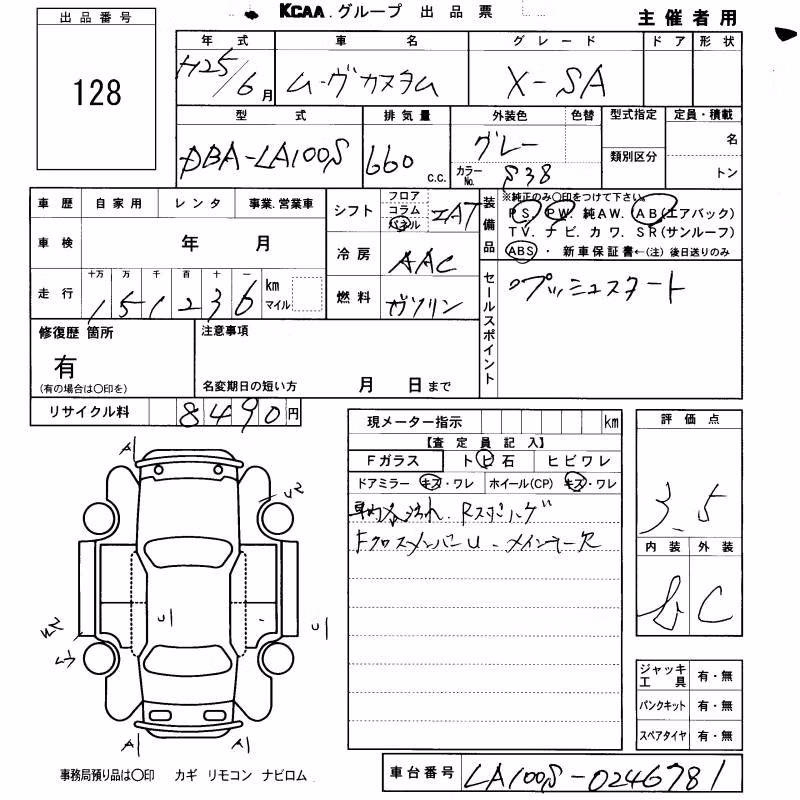 KCAA.グループ 出品票
主催者用
出品番号
128
年式 車名 グレード ドア 形状
H25/6月 ムーヴカスタム X-SA
型式 排気量 外装色 色替 型式指定 定員・積載
DBA-LA100S 660 c.c. グレー 類別区分 名
カラーNo. S38 トン
車歴 自家用 レンタ 事業.営業車
シフト フロア コラム パネル IAT
装備品 ※純正のみ〇印をつけて下さい。
PS. PW. 純AW. AB(エアバック)
TV. ナビ. カワ. SR(サンルーフ)
ABS ・ 新車保証書←(注) 後日送りのみ
車検 年 月
冷房 AAC
走行 十万 万 千 百 十 一 km マイル
151236
燃料 ガソリン
セールスポイント
プッシュスタート
修復歴 箇所
有
(有の場合は〇印を)
注意事項
名変期日の短い方 月 日まで
リサイクル料 8490円
現メーター指示 km
【査定員記入】
Fガラス トビ石 ヒビワレ
ドアミラー キズ・ワレ ホイール(CP) キズ・ワレ
車内汚れ.
FクロスメンバーU. メインキー欠
評価点
3.5
内装 外装
b C
A
U2
W2
U
U
A A
ジャッキ工具 有・無
パンクキット 有・無
スペアタイヤ 有・無
事務局預り品は〇印 カギ リモコン ナビロム
車台番号 LA100S-0246781